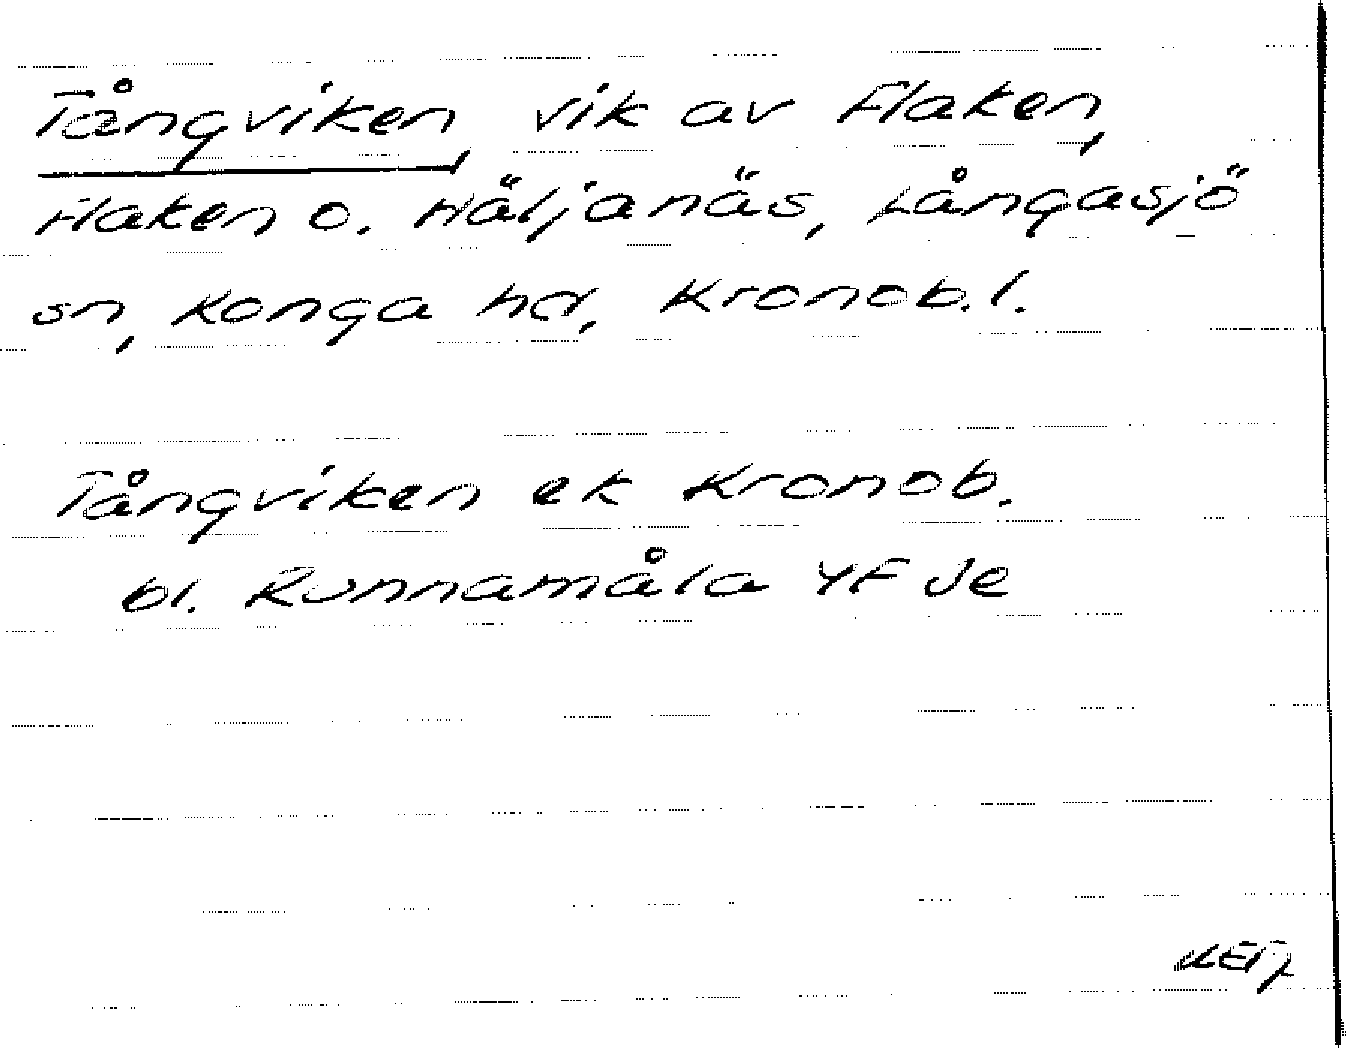 Tångviken, vik av Flaken,
Flaken o. Häljanäs, Långasjö
sn, Konga hd, Kronob. l.
Tångviken ek Kronob.
bl. Runnamåla 4F Je